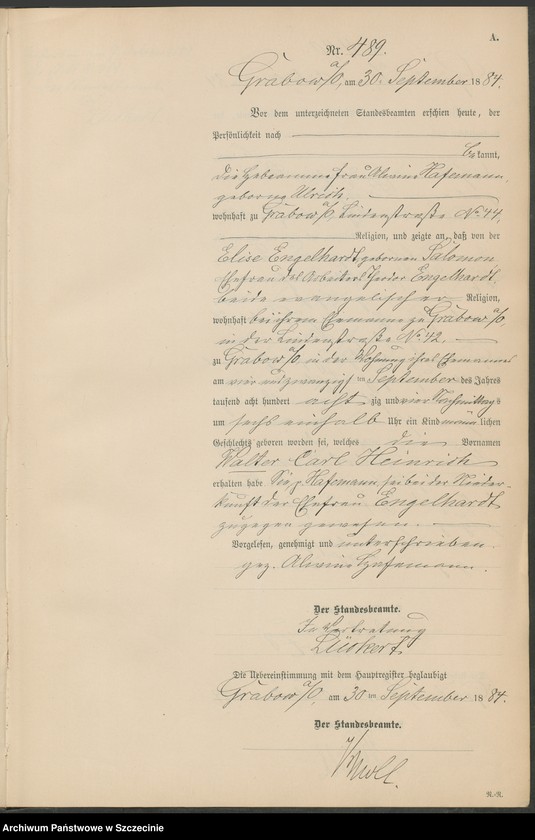 A.
Nr. 489.
Grabow a/O, am 30. September 1884.
Vor dem unterzeichneten Standesbeamten erschien heute, der
Persönlichkeit nach
bekannt,
die Hebeamme Frau Alwine Hafemann
geborne Ulrich,
wohnhaft zu Grabow a/O, Lindenstraße No 44,
Religion, und zeigte an, daß von der
Elise Engelhardt gebornen Salomon
Ehefrau des Arbeiters Engelhardt,
beide evangelischer Religion,
wohnhaft bei ihrem Ehemanne zu Grabow a/O,
in der Lindenstraße No 42,
zu Grabow a/O, in der Wohnung ihres Ehemannes
am vier und zwanzigsten September des Jahres
tausend acht hundert achtzig und vier Nachmittags
um sechs einhalb Uhr ein Kind männlichen
Geschlechts geboren worden sei, welches die Vornamen
Walter Carl Heinrich
erhalten habe. Sie, Hafemann sei bei der Nieder-
kunft der Ehefrau Engelhardt
zugegen gewesen.
Vorgelesen, genehmigt und unterschrieben
gez. Alwine Hafemann.
Der Standesbeamte.
In Vertretung
Lückert
Die Uebereinstimmung mit dem Hauptregister beglaubigt
Grabow a/O, am 30ten September 1884.
Der Standesbeamte.
R.-R.
Archiwum Państwowe w Szczecinie